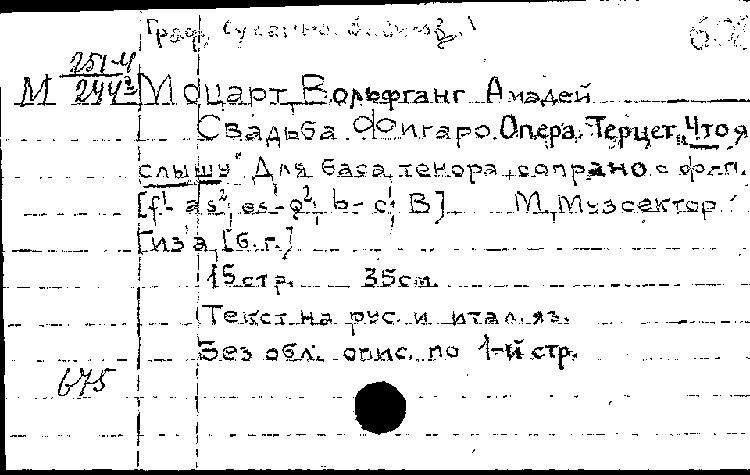 Граф, Сусанна,
608
М 251-4
244² Моцарт, Вольфганг Амадей
Свадьба Фигаро. Опера. Терцет „Что я
слышу" Для баса, тенора, сопрано с фп.
[f¹- as²; es¹- g²; b- c¹; B] М., Музсектор
Гиз'а, [б. г.]
15 стр. 35 см.
Текст на рус. и итал. яз.
Без обл. опис. по 1-й стр.
675